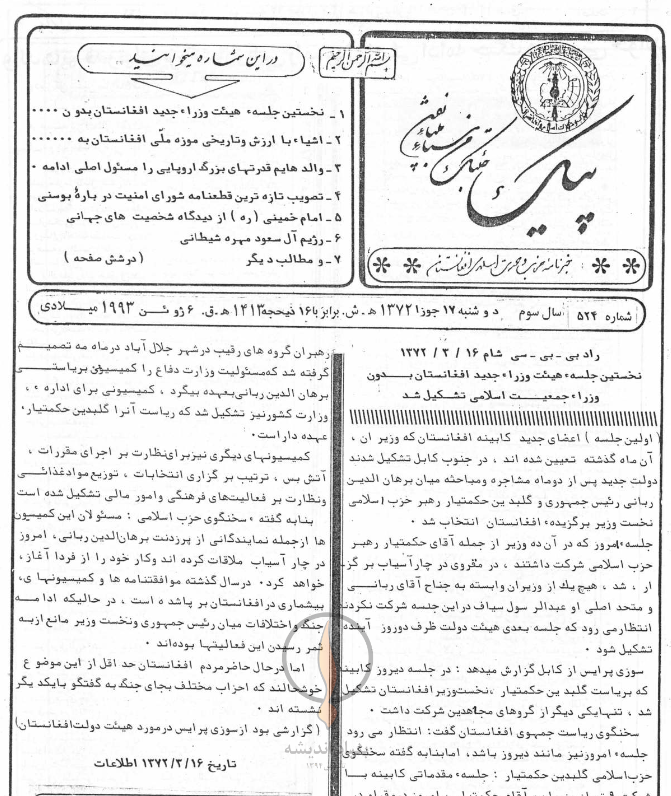 بسم الله الرحمن الرحیم
پیک
خبرنامه حزب وحدت اسلامی افغانستان
در این شماره میخوانید
۱ـ نخستین جلسهء هیئت وزراء جدید افغانستان بدون ....
۲ـ اشیاء با ارزش وتاریخی موزه ملّی افغانستان به ......
۳ـ والد هایم قدرتهای بزرگ اروپایی را مسئول اصلی ادامه ۰
۴ـ تصویب تازه ترین قطعنامه شورای امنیت در بارهٔ بوسنی
۵ ـ امام خمینی (ره) از دیدگاه شخصیت های جهانی
۶ـ رژیم آل سعود مهره شیطانی
۷ـ و مطالب دیگر (درشش صفحه)
شماره ۵۲۴ سال سوم دو شنبه ۱۷ جوزا ۱۳۷۲ هـ ش. برابر با ۱۶ ذیحجه ۱۴۱۳ هـ ق. ۶ ژوئن ۱۹۹۳ میلادی
رادبی ـ بی ـ سی شام ۱۶ / ۳ / ۱۳۷۲
نخستین جلسهء هیئت وزراء جدید افغانستان بدون
وزراء جمعیت اسلامی تشکیل شد
(اولین جلسه) اعضای جدید کابینه افغانستان که وزیر ان ،
آن ماه گذشته تعیین شده اند ، در جنوب کابل تشکیل شدند
دولت جدید پس از دوماه مشاجره ومباحثه میان برهان الدین
ربانی رئیس جمهوری و گلبد ین حکمتیار رهبر حزب اسلامی
نخست وزیر برگزیدهء افغانستان انتخاب شد ۰
جلسهء امروز که در آن ده وزیر از جمله آقای حکمتیار رهبر
حزب اسلامی شرکت داشتند ، در مقروی در چار آسیاب بر گز
ار ، شد ، هیچ یك از وزیران وابسته به جناح آقای ربانی
و متحد اصلی او عبدالر سول سیاف در این جلسه شرکت نکردند
انتظار می رود که جلسه بعدی هیئت دولت ظرف دوروز آینده
تشکیل شود ۰
سوزی پرایس از کابل گزارش میدهد : در جلسه دیروز کابینه
که بریاست گلبد ین حکمتیار ، نخست وزیر افغانستان تشکیل
شد ، تنهایکی دیگر از گروهای مجاهدین شرکت داشت ۰
سخنگوی ریاست جمهوی افغانستان گفت: انتظار می رود
جلسهء امروزنیز مانند دیروز باشد، امابنابه گفته سخنگوی
حزب اسلامی گلبدین حکمتیار : جلسهء مقدماتی کابینه بـا
رهبران گروه های رقیب درشهر جلال آباد درماه مه تصمیم
گرفته شد که مسئولیت وزارت دفاع را کمیسیون بریاست
برهان الدین ربانی بعهده بیگرد ، کمیسیونی برای اداره ء ،
وزارت کشورنیز تشکیل شد که ریاست آنرا گلبدین حکمتیار،
عهده داراست ۰
کمیسیونهای دیگری نیز برای نظارت بر اجرای مقررات ،
آتش بس ، ترتیب بر گزاری انتخابات ، توزیع موادغذائی
ونظارت بر فعالیتهای فرهنگی وامور مالی تشکیل شده است
بنابه گفته ء سخنگوی حزب اسلامی : مسئولان این کمیسون
ها ازجمله نمایندگانی از پرزدنت برهان الدین ربانی، امروز
در چار آسیاب ملاقات کرده اند وکار خود را از فردا آغاز،
خواهد کرد۰ درسال گذشته موافقتنامه ها و کمیسیونها ی،
بیشماری درافغانستان بر پاشد ه است ، در حالیکه ادامه
جنگ واختلافات میان رئیس جمهوری ونخست وزیر مانع ازبه
ثمر رسیدن این فعالیتها بوده اند ۰
اما درحال حاضر مردم افغانستان حد اقل از این موضو ع
خوشحالند که احزاب مختلف بجای جنگ به گفتگو بایکد یگر
نشسته اند ۰
(گزارشی بود ازسوزی پرایس درمورد هیئت دولت افغانستان)
تاریخ ۱۳۷۲/۳/۱۶ اطلاعات